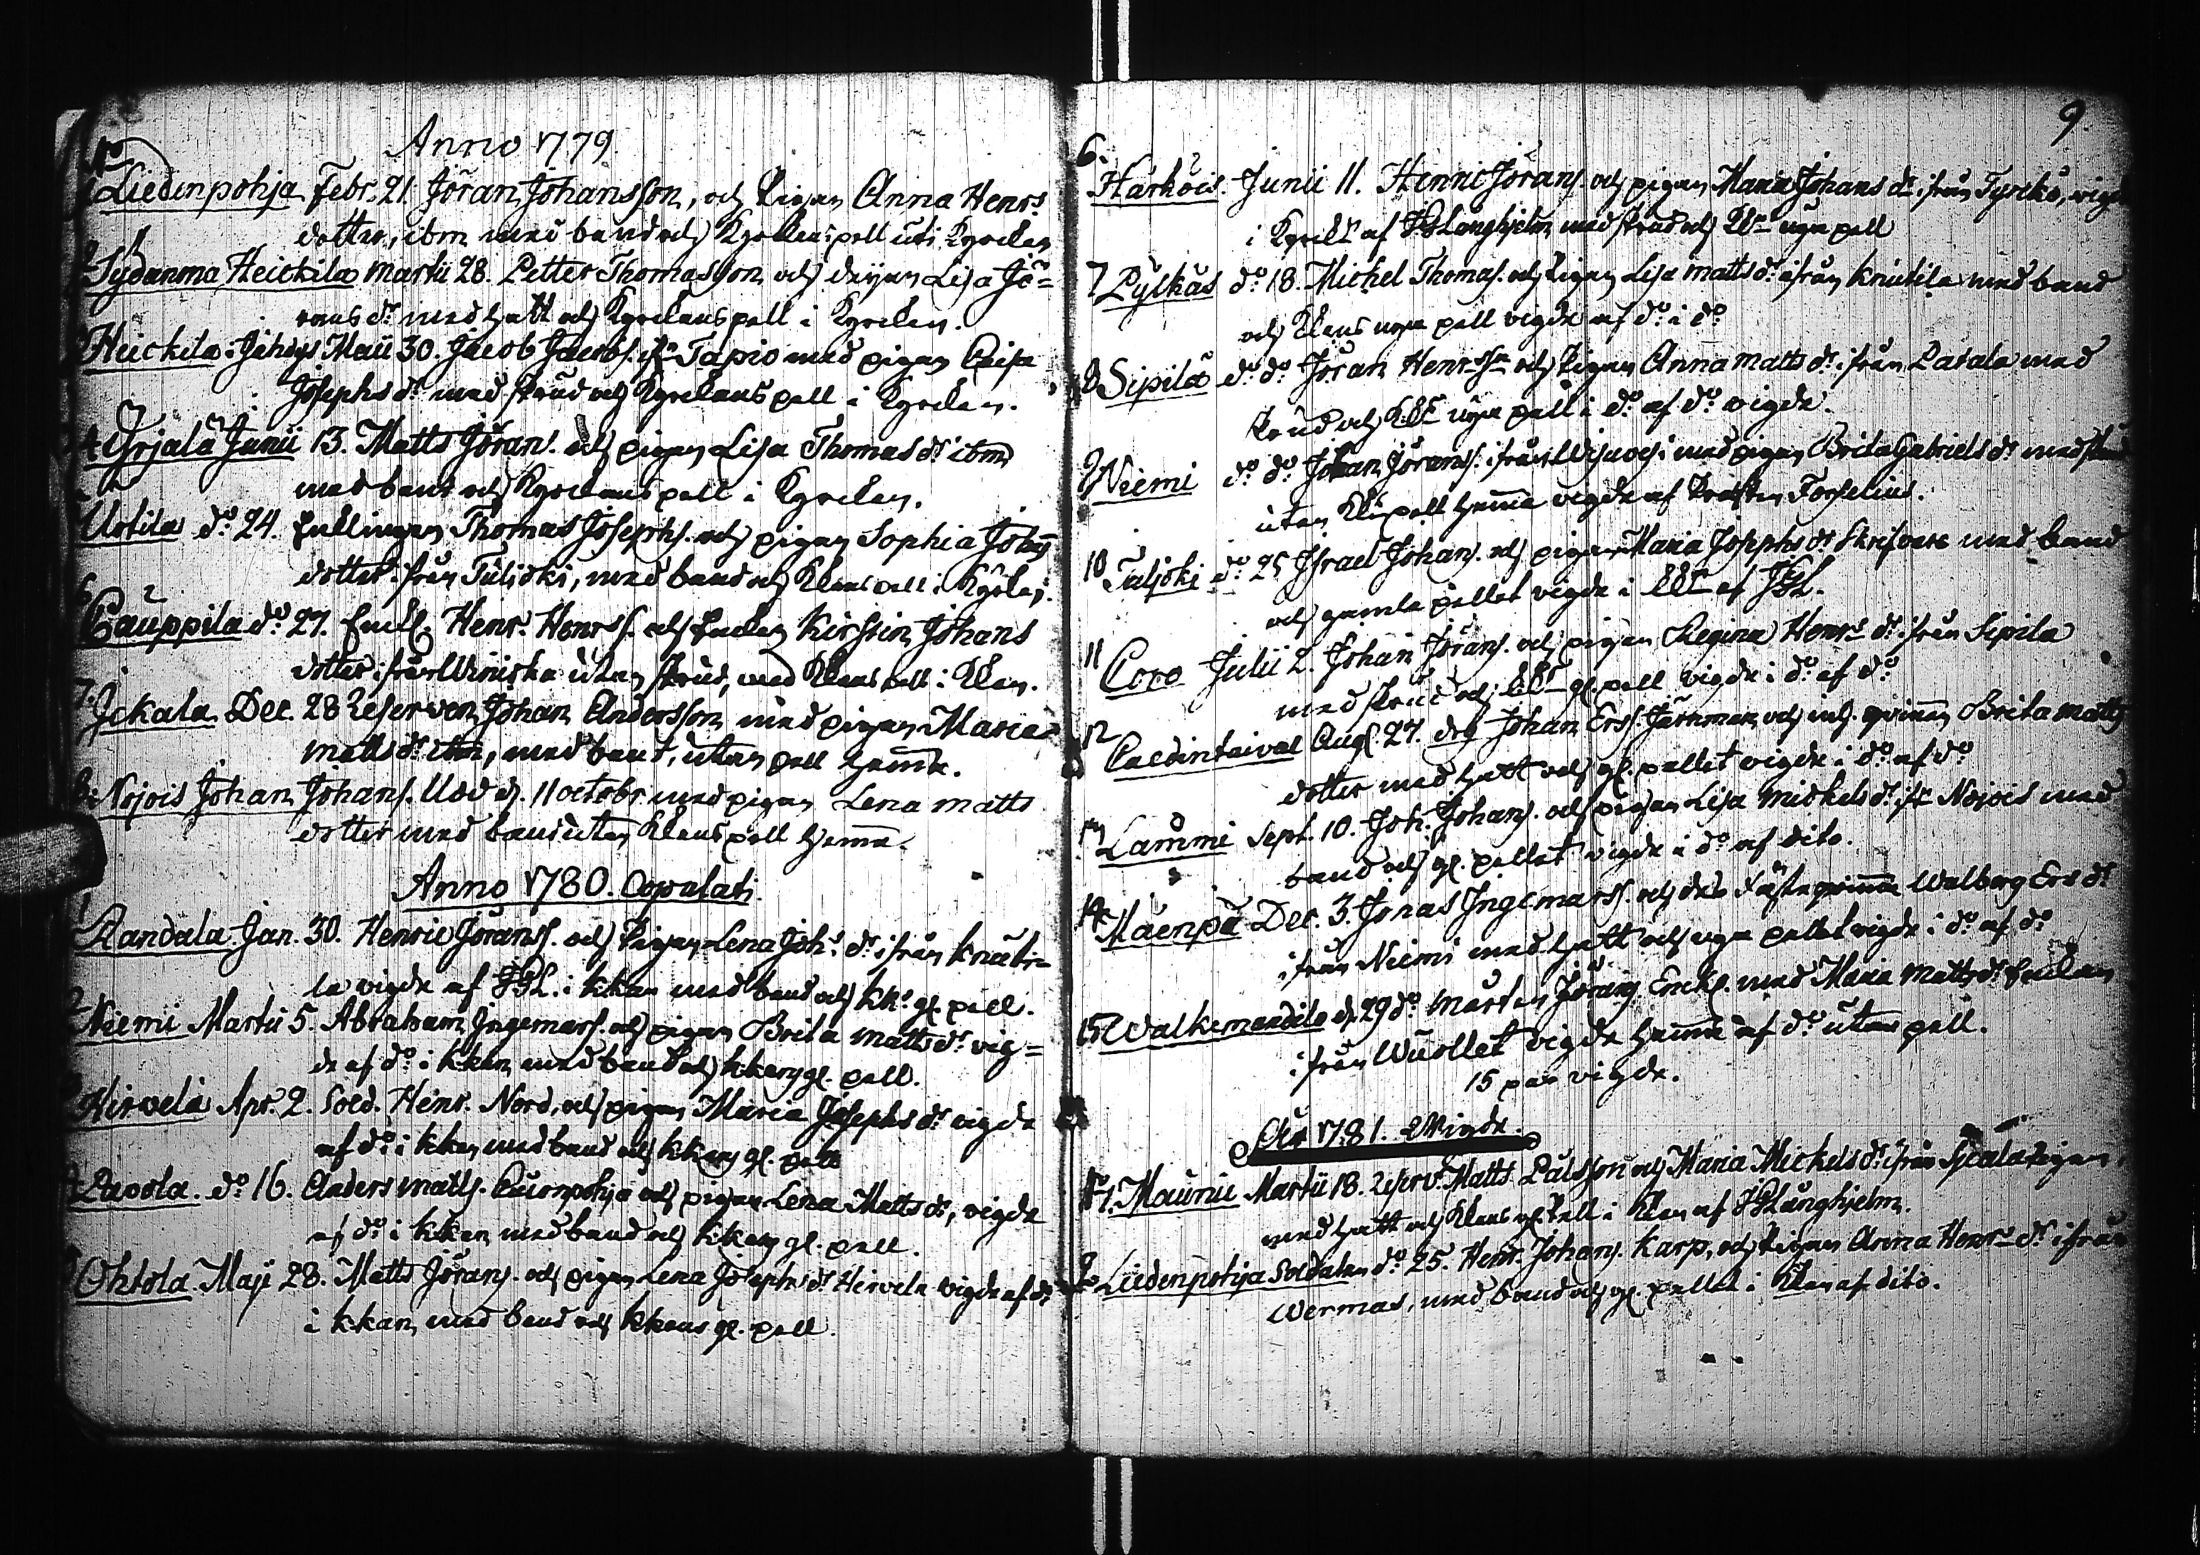 Anno 1779.
1 Liedenpohja Febr. 21. Jöran Johansson, och Pigan Anna Henrs
dotter, ibm med band och Kyrkans pell uti Kyrckan
2 Sydänma Heickilä Martii 28. Petter Thomasson och Pigan Lisa Jö=
rans dr. med hatt och Kyrckans pell i Kyrckan.
Heickilä Maii 30. Jacob Jacobs. ifr Tapio med pigan Caisa
Josephs dr med skrud och Kyrckans pell i Kyrckan.
4 Yrjälä Junii 13. Matts Jörans. och pigan Lisa Thomas dr ibm
med band och Kyrckans pell i Kyrckan.
Uotila do. 24. Enklingen Thomas Josephs. och pigan Sophia Johans
dotter ifrån Tulijoki, med band och Kkans pell i Kyrkan.
6 Cauppila do 27. Enkl. Henr. Henrss. och Enkan Kirstin Johans
dotter ifrån utan skrud, med Kkans pell i Kkan.
7. Jckala Dec. 28 Reserven Johan Andersson med pigan Maria
Matts dr. ibm, med band, utan pell hemma.
8. Nojois Johan Johans. Uod d. 11 octobr med pigan Lena Matts
dotter med band utan Kkans pell hemma.
Anno 1780. Copulati.
1 Randala Jan. 30. Henric Jöranss. och Pigan Lena Johs. dr. ifrån Knuti=
la vigde af JGL. i kkan med band och kks. gl. pell.
2 Niemi Martii 5. Abraham Ingemars. och pigan Brita Matts dr. vig=
de af do. i kkan med band och kkans gl. pell.
Hirvelä Apr. 2. Sold. Henr. Nord, och pigan Maria Josephs dr. vigde
af do. i kkan med band och kkans gl. pell
4 Pavola. do. 16. Anders Matts. och pigan Lena Matts dr, vigde
af do. i kkan med band och kkans gl. pell.
Ohtola Maji 28. Matts Jörans. och pigan Lena Josephs dr Hirvelä vigde af do.
i kkan med band och kkans gl. pell.
9.
6. Härköis. Junii 11. Henric Jörans. och pigan Maria Johans dr. ifrån Tyrckö, vigde
i Kyrckn af JGLunghjelm med skrud och Kkns nya pell
7 Pylkäs do. 18. Michel Thomas. och Pigan Lisa Matts dr. ifrån Knutila med band
och Kkans nya pell vigde af do. i do.
8 Sipilä do. do. Jöran Henrssn och Pigan Anna Matts dr. ifrån Patala med
skrud och Kkns nya pell i do. af do. vigde.
9 Niemi do. do. Johan Jöranss. ifrån med pigan Brita Gabriels dr. med
utan Kks pell hemma vigde af Forselius.
10 Tulijoki do. 25 Israel Johans. och pigan Maria Josephs dr Skrifvare med band
och gamla pellet vigde i kkn af JGL.
11 Coro Julii 2. Johan Jörans. och pigan Regina Henrs dr. ifrån Sipilä
med skrud och kkns gl. pell vigde i do. af do
12 Caldintaival Aug. 27. Johan Erss. Järnman och qvinnan Brita Matts
dotter med hatt och gl. pellet vigde i do. af do
13 Lammi Sept. 10. Joh. Johans. och pigan Lisa Mickels dr. ifr Nojois med
band och gl. pellet vigde i do af dito.
14 Mäenpä Dec. 3. Jonas Ingemarss. och Walborg Ers dr
ifrån Niemi med hatt och nya pellet vigde i do. af do
15 Walkemandila d. 29 do. Mårten Jörans Enkl. med Maria Matts dr. Enkan
ifrån Wuollet vigde hemma af do. utan pell.
15 par vigde.
År 1781. Wigde.
1. Maunu Martii 18. Reserv. Matts Pålsson och Maria Mickels dr ifrån Pigan
med hatt och Kkans gl. Pell i Kkan af JGLunghjelm.
2. Liedenpohja Soldaten do. 25. Henr. Johans. Karp, och Pigan Anna Henrs dr. ifrån
Wermas, med band och gl. pellet i Kkan af dito.